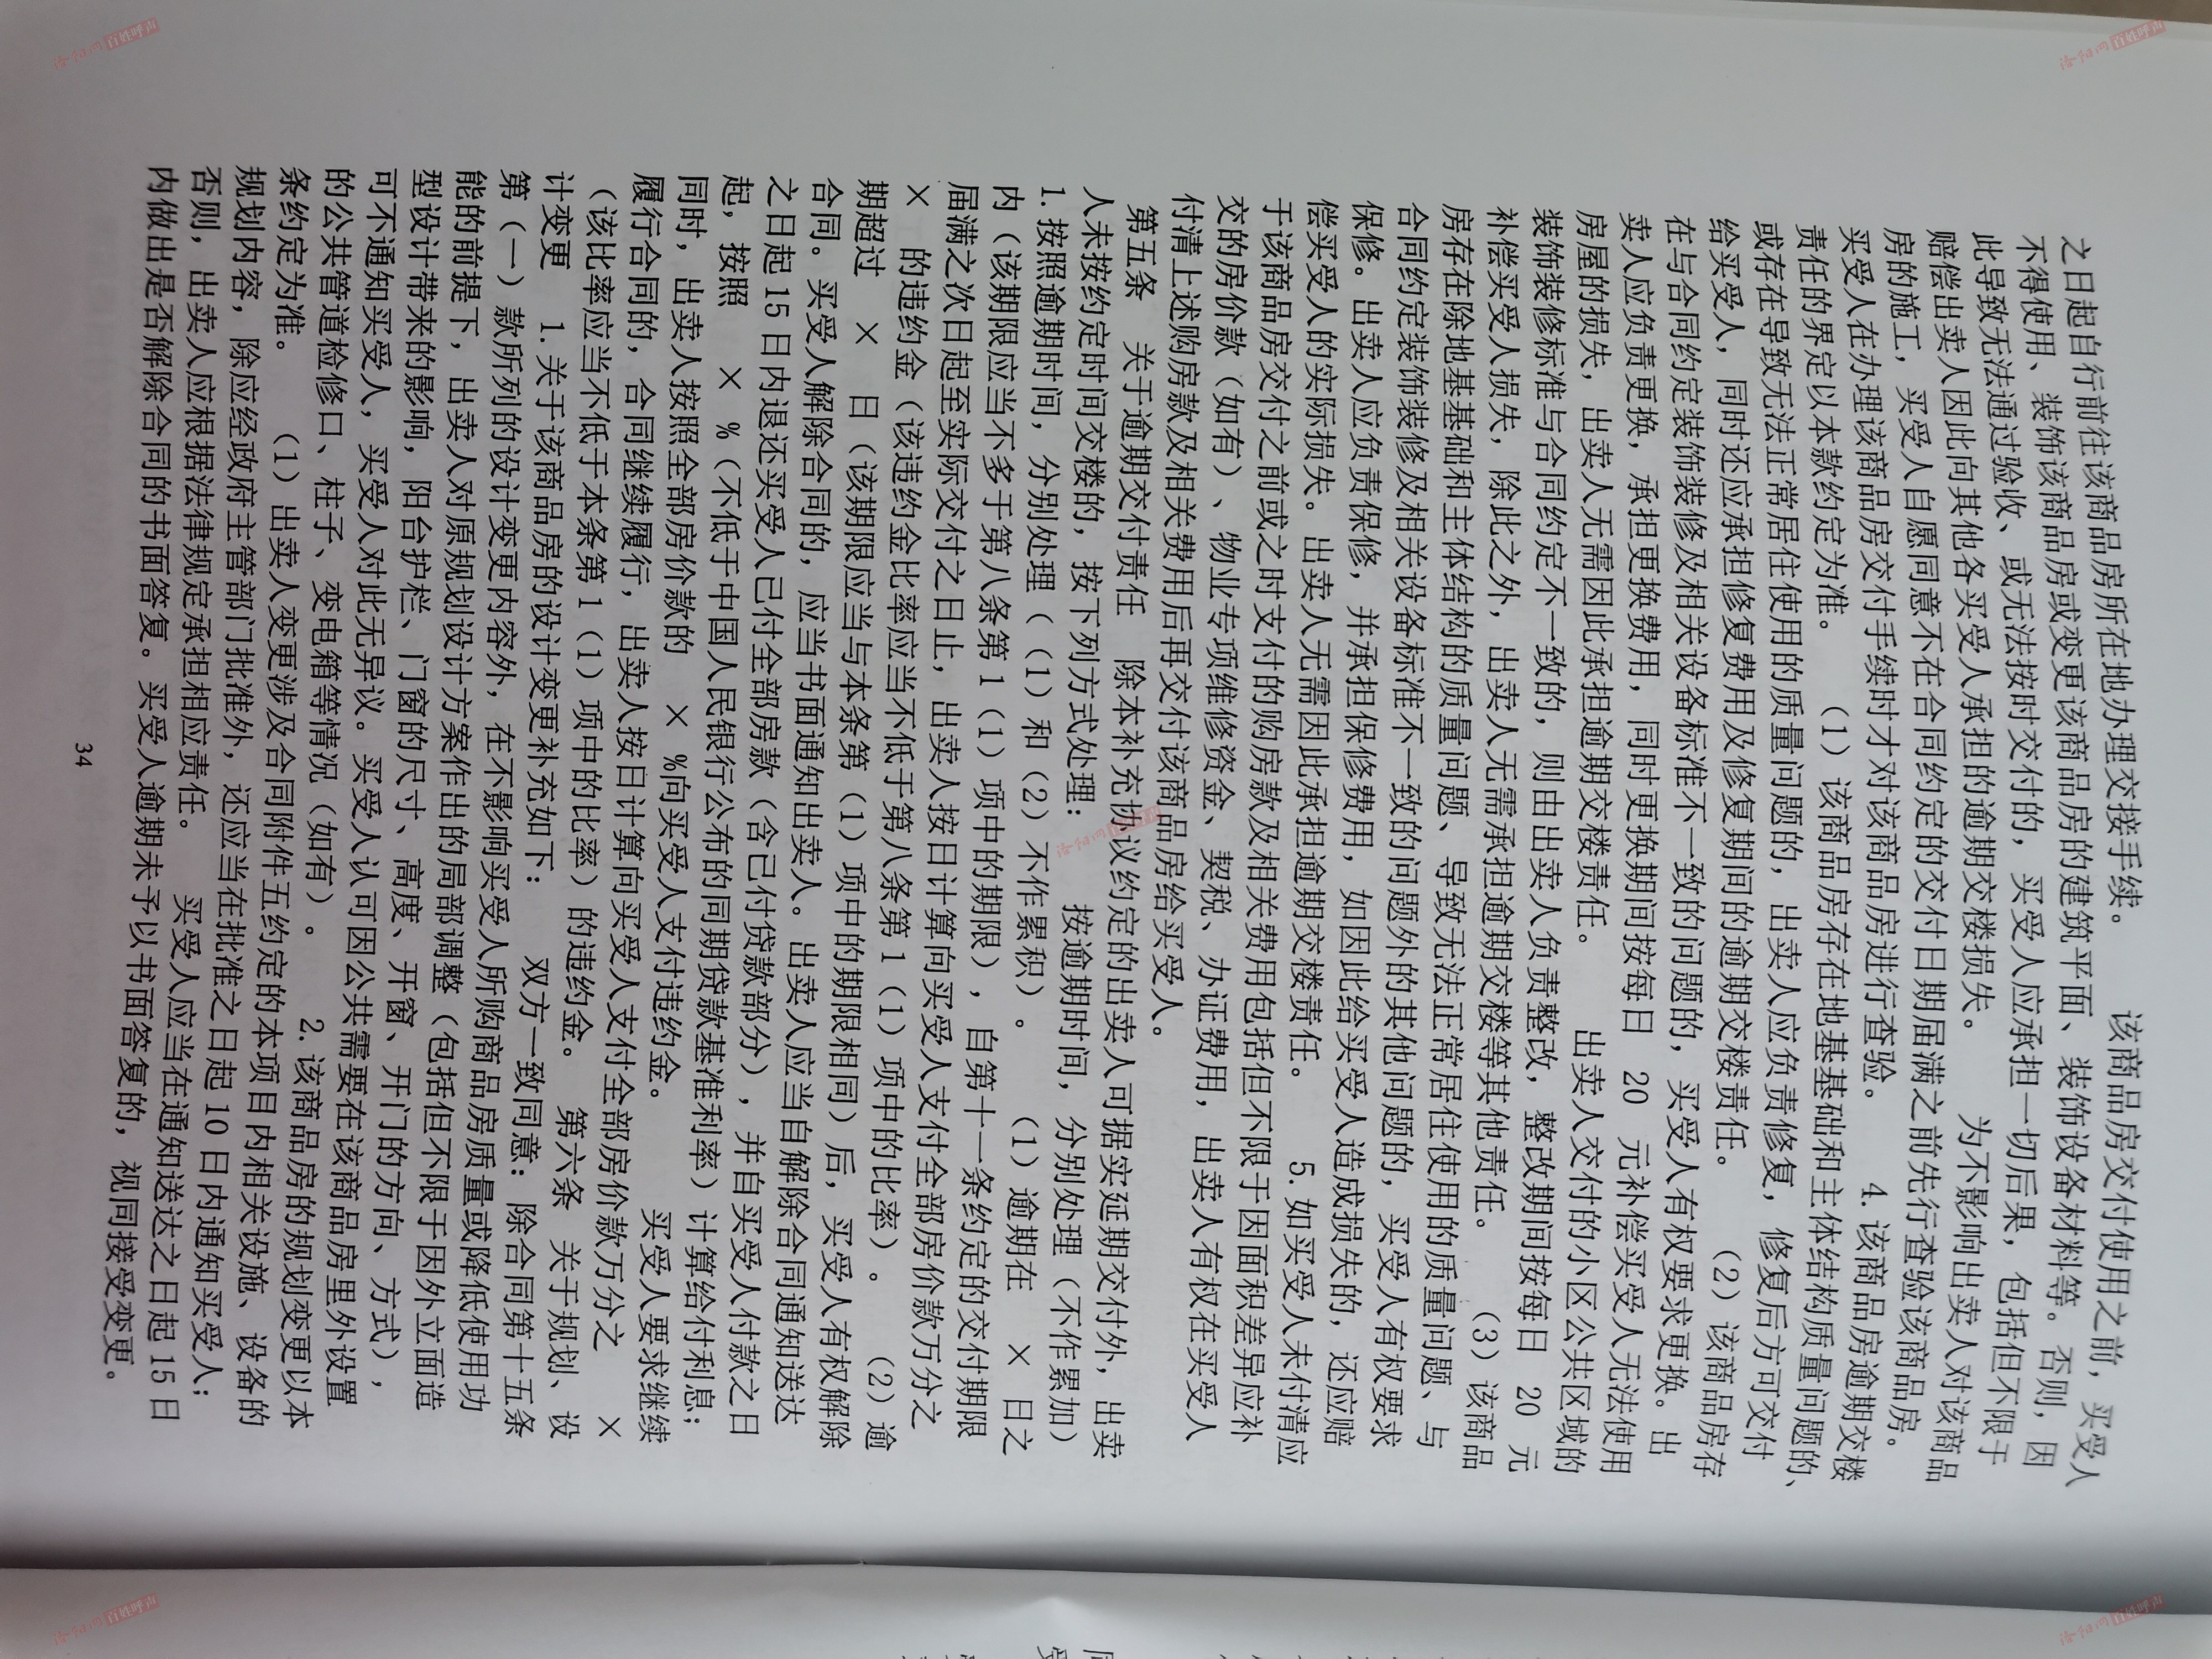 之日起自行前往该商品房所在地办理交接手续。 该商品房交付使用之前，买受人
不得使用、装饰该商品房或变更该商品房的建筑平面、装饰设备材料等。否则，因
此导致无法通过验收、或无法按时交付的，买受人应承担一切后果，包括但不限于
赔偿出卖人因此向其他各买受人承担的逾期交楼损失。 为不影响出卖人对该商品
房的施工，买受人自愿同意不在合同约定的交付日期届满之前先行查验该商品房。
买受人在办理该商品房交付手续时才对该商品房进行查验。 4.该商品房逾期交楼
责任的界定以本款约定为准。 （1）该商品房存在地基基础和主体结构质量问题的、
或存在导致无法正常居住使用的质量问题的，出卖人应负责修复，修复后方可交付
给买受人，同时还应承担修复费用及修复期间的逾期交楼责任。 （2）该商品房存
在与合同约定装饰装修及相关设备标准不一致的问题的，买受人有权要求更换。出
卖人应负责更换，承担更换费用，同时更换期间按每日 20 元补偿买受人无法使用
房屋的损失，出卖人无需因此承担逾期交楼责任。 出卖人交付的小区公共区域的
装饰装修标准与合同约定不一致的，则由出卖人负责整改，整改期间按每日 20 元
补偿买受人损失，除此之外，出卖人无需承担逾期交楼等其他责任。 （3）该商品
房存在除地基基础和主体结构的质量问题、导致无法正常居住使用的质量问题、与
合同约定装饰装修及相关设备标准不一致的问题外的其他问题的，买受人有权要求
保修。出卖人应负责保修，并承担保修费用，如因此给买受人造成损失的，还应赔
偿买受人的实际损失。出卖人无需因此承担逾期交楼责任。 5.如买受人未付清应
于该商品房交付之前或之时支付的购房款及相关费用包括但不限于因面积差异应补
交的房价款（如有）、物业专项维修资金、契税、办证费用，出卖人有权在买受人
付清上述购房款及相关费用后再交付该商品房给买受人。
第五条 关于逾期交付责任 除本补充协议约定的出卖人可据实延期交付外，出卖
人未按约定时间交楼的，按下列方式处理： 按逾期时间，分别处理（不作累加）
1.按照逾期时间，分别处理（（1）和（2）不作累积）。 （1）逾期在 × 日之
内（该期限应当不多于第八条第1（1）项中的期限），自第十一条约定的交付期限
届满之次日起至实际交付之日止，出卖人按日计算向买受人支付全部房价款万分之
× 的违约金（该违约金比率应当不低于第八条第1（1）项中的比率）。 （2）逾
期超过 × 日（该期限应当与本条第（1）项中的期限相同）后，买受人有权解除
合同。买受人解除合同的，应当书面通知出卖人。出卖人应当自解除合同通知送达
之日起15日内退还买受人已付全部房款（含已付贷款部分），并自买受人付款之日
起，按照 × %（不低于中国人民银行公布的同期贷款基准利率）计算给付利息；
同时，出卖人按照全部房价款的 × %向买受人支付违约金。 买受人要求继续
履行合同的，合同继续履行，出卖人按日计算向买受人支付全部房价款万分之 ×
（该比率应当不低于本条第1（1）项中的比率）的违约金。 第六条 关于规划、设
计变更 1.关于该商品房的设计变更补充如下： 双方一致同意：除合同第十五条
第（一）款所列的设计变更内容外，在不影响买受人所购商品房质量或降低使用功
能的前提下，出卖人对原规划设计方案作出的局部调整（包括但不限于因外立面造
型设计带来的影响，阳台护栏、门窗的尺寸、高度、开窗、开门的方向、方式），
可不通知买受人，买受人对此无异议。买受人认可因公共需要在该商品房里外设置
的公共管道检修口、柱子、变电箱等情况（如有）。 2.该商品房的规划变更以本
条约定为准。 （1）出卖人变更涉及合同附件五约定的本项目内相关设施、设备的
规划内容，除应经政府主管部门批准外，还应当在批准之日起10日内通知买受人；
否则，出卖人应根据法律规定承担相应责任。 买受人应当在通知送达之日起15日
内做出是否解除合同的书面答复。买受人逾期未予以书面答复的，视同接受变更。
34
洛阳网 百姓呼声
洛阳网 百姓呼声
洛阳网 百姓呼声
洛阳网 百姓呼声
洛阳网 百姓呼声